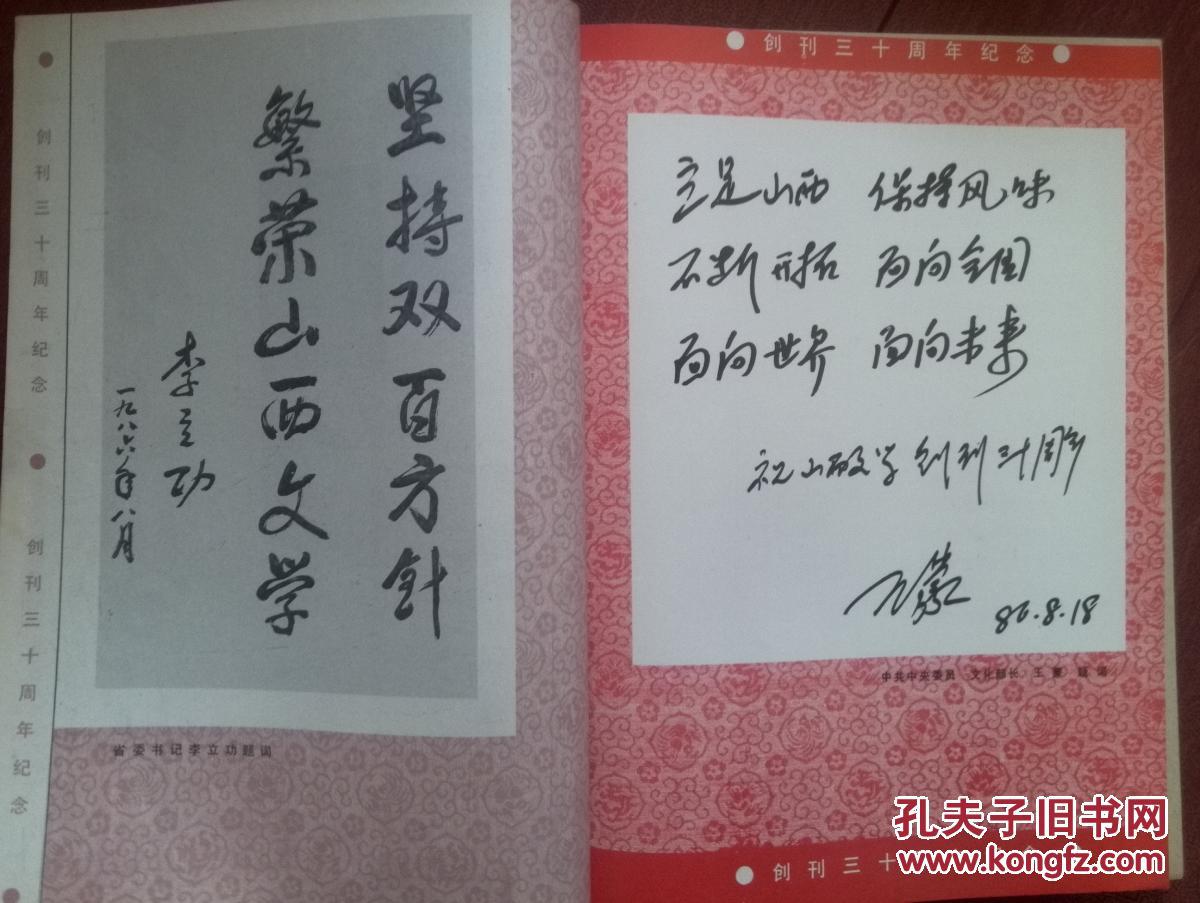 创刊三十周年纪念
创刊三十周年纪念
坚持双百方针
繁荣山西文学
李立功
一九八六年八月
省委书记李立功题词
创刊三十周年纪念
立足山西 保持风味
不断开拓 面向全国
面向世界 面向未来
祝山西文学创刊三十周年
王蒙
86.8.18
中共中央委员 文化部长 王蒙 题词
创刊三十
孔夫子旧书网
www.kongfz.com